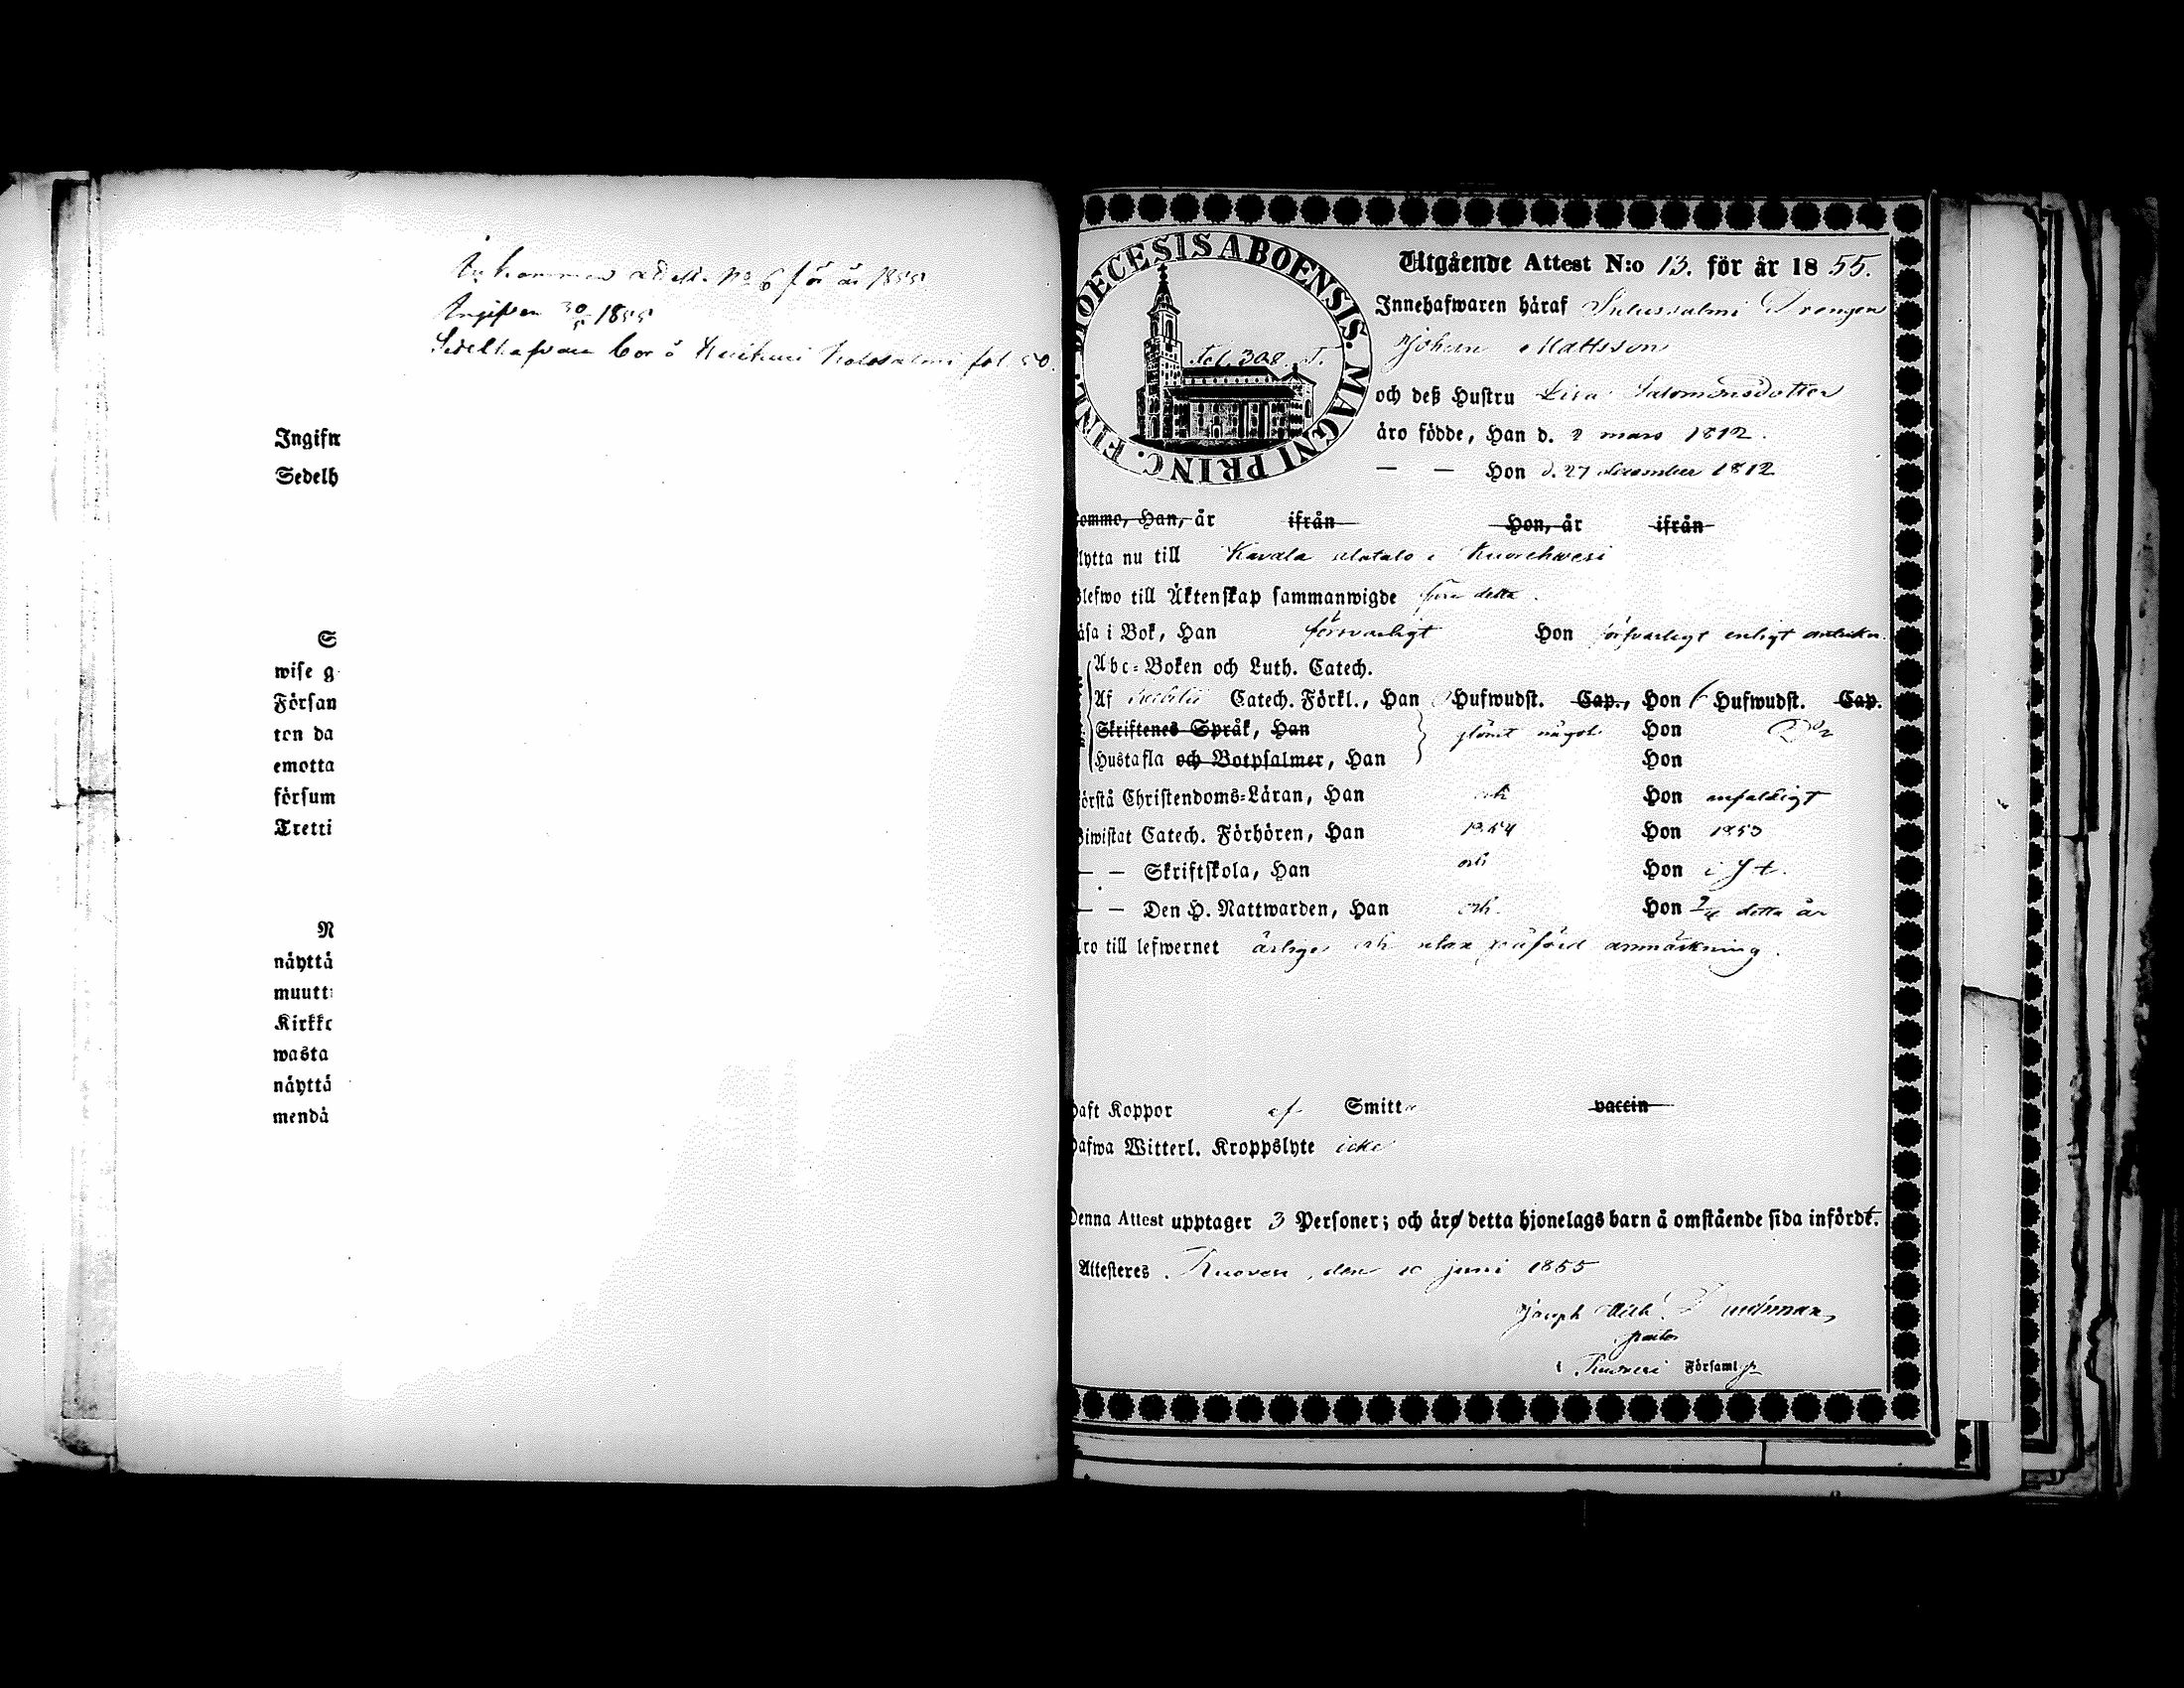 Inkommen attest. No 6 för år 1855
Ingifven 30/5 1855
Sedelhafvare bor å fol. 50.
Ingifn
Sedelh
S
wise g
Försan
ten da
emotta
försum
Tretti
N
näyttä
muutt
Kirkko
wasta
näyttä
mendä
DIOECESIS ABOENSIS. MAGNI PRINC. FINL.
fol. 308. T.
Utgående Attest N:o 13. för år 1855.
Innehafwaren häraf Drengen
Johan Mattsson
och deß Hustru Lisa Salomonsdotter
äro födde, Han d. 2 mars 1812.
— — Hon d. 27 december 1812
komme, Han, år ifrån Hon, år ifrån
flytta nu till Kavala alatalo i Kuorehvesi
Blefwo till Äktenskap sammanwigde före detta.
läsa i Bok, Han försvarligt Hon försvarligt enligt anteckn.
Abc-Boken och Luth. Catech.
Af Catech. Förkl., Han Hufwudst. Cap., Hon 6 Hufwudst. Cap.
Skriftenes Språk, Han glömt något Hon Do
Hustafla och Botpsalmer, Han Hon
förstå Christendoms-Läran, Han och Hon enfaldigt
Biwistat Catech. Förhören, Han 1854 Hon 1853
— — Skriftskola, Han och Hon i s. t.
— — Den H. Nattwarden, Han och Hon detta år
äro till lefwernet ärlige och utan påförd anmärkning.
Haft Koppor af Smitta vaccin
Hafwa Witterl. Kroppslyte icke
Denna Attest upptager 3 Personer; och äro detta hjonelags barn å omstående sida infördt.
Attesteres. Ruovesi, den 10 juni 1855
Joseph Wilh.
pastor
i Ruovesi Församlg